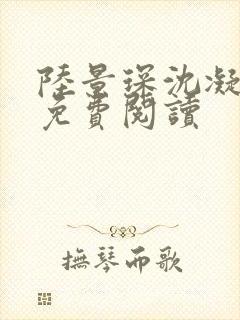 陸景琛沈凝
免費閱讀
撫琴而歌